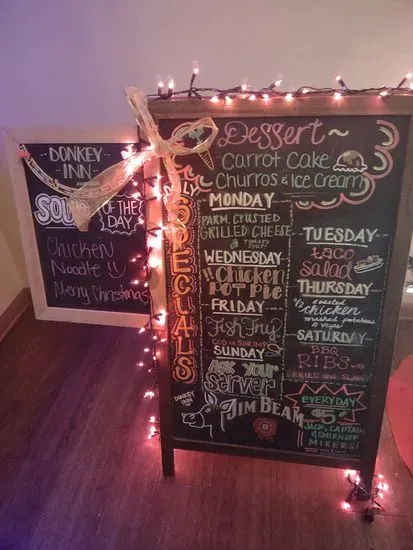 DONKEY
INN
SOUP OF THE
DAY
Chicken
Noodle
Merry Christmas
Dessert
Carrot Cake
Churros & Ice Cream
DAILY
SPECIALS
MONDAY
PARM. CRUSTED
GRILLED CHEESE
& TOMATO
SOUP
WEDNESDAY
"Chicken
POT PIE
FRIDAY
Fish Fry
COD OR SHRIMP
SUNDAY
Ask your
Server
TUESDAY
taco
Salad
THURSDAY
½ roasted
chicken
mashed potatoes
& vegs
SATURDAY
BBQ
RIBS with
FRIES AND SLAW
EVERYDAY
$5
JACK, CAPTAIN
& SMIRNOFF
MIXERS!
DONKEY
INN
JIM BEAM
B